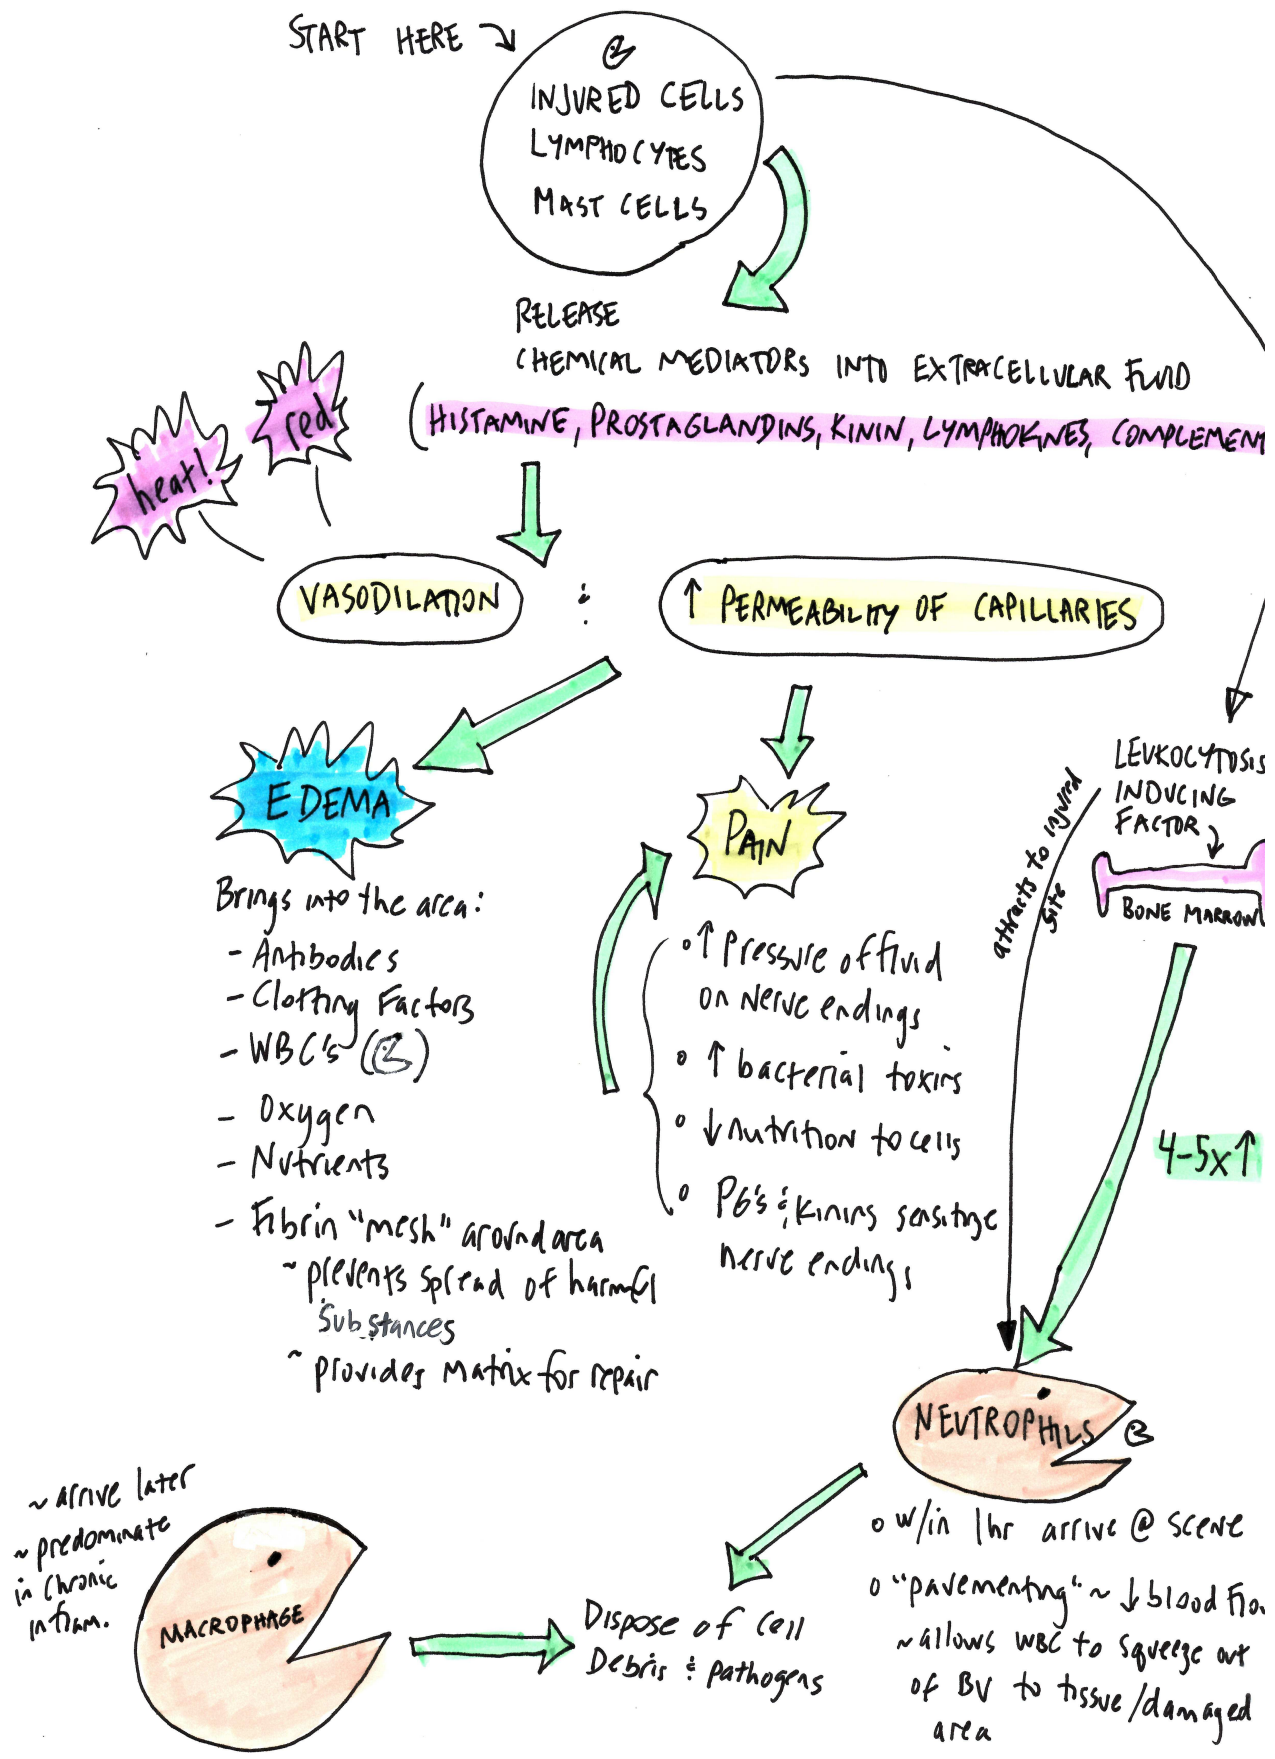 START HERE
INJURED CELLS
LYMPHOCYTES
MAST CELLS
RELEASE
CHEMICAL MEDIATORS INTO EXTRACELLULAR FLUID
(HISTAMINE, PROSTAGLANDINS, KININ, LYMPHOKINES, COMPLEMENT
red
heat!
VASODILATION & ↑ PERMEABILITY OF CAPILLARIES
EDEMA
Brings into the area:
- Antibodies
- Clotting Factors
- WBC's ( )
- Oxygen
- Nutrients
- Fibrin "mesh" around area
~ prevents spread of harmful
substances
~ provides matrix for repair
PAIN
○ ↑ pressure of fluid
on nerve endings
○ ↑ bacterial toxins
○ ↓ nutrition to cells
○ PG's & kinins sensitize
nerve endings
LEUKOCYTOSIS
INDUCING
FACTOR
BONE MARROW
attracts to injured
site
4-5x↑
NEUTROPHILS
○ w/in 1hr arrive @ scene
○ "pavementing" ~ ↓ blood flow
~ allows WBC to squeeze out
of BV to tissue/damaged
area
~ arrive later
~ predominate
in chronic
inflam.
MACROPHAGE
Dispose of cell
Debris & pathogens